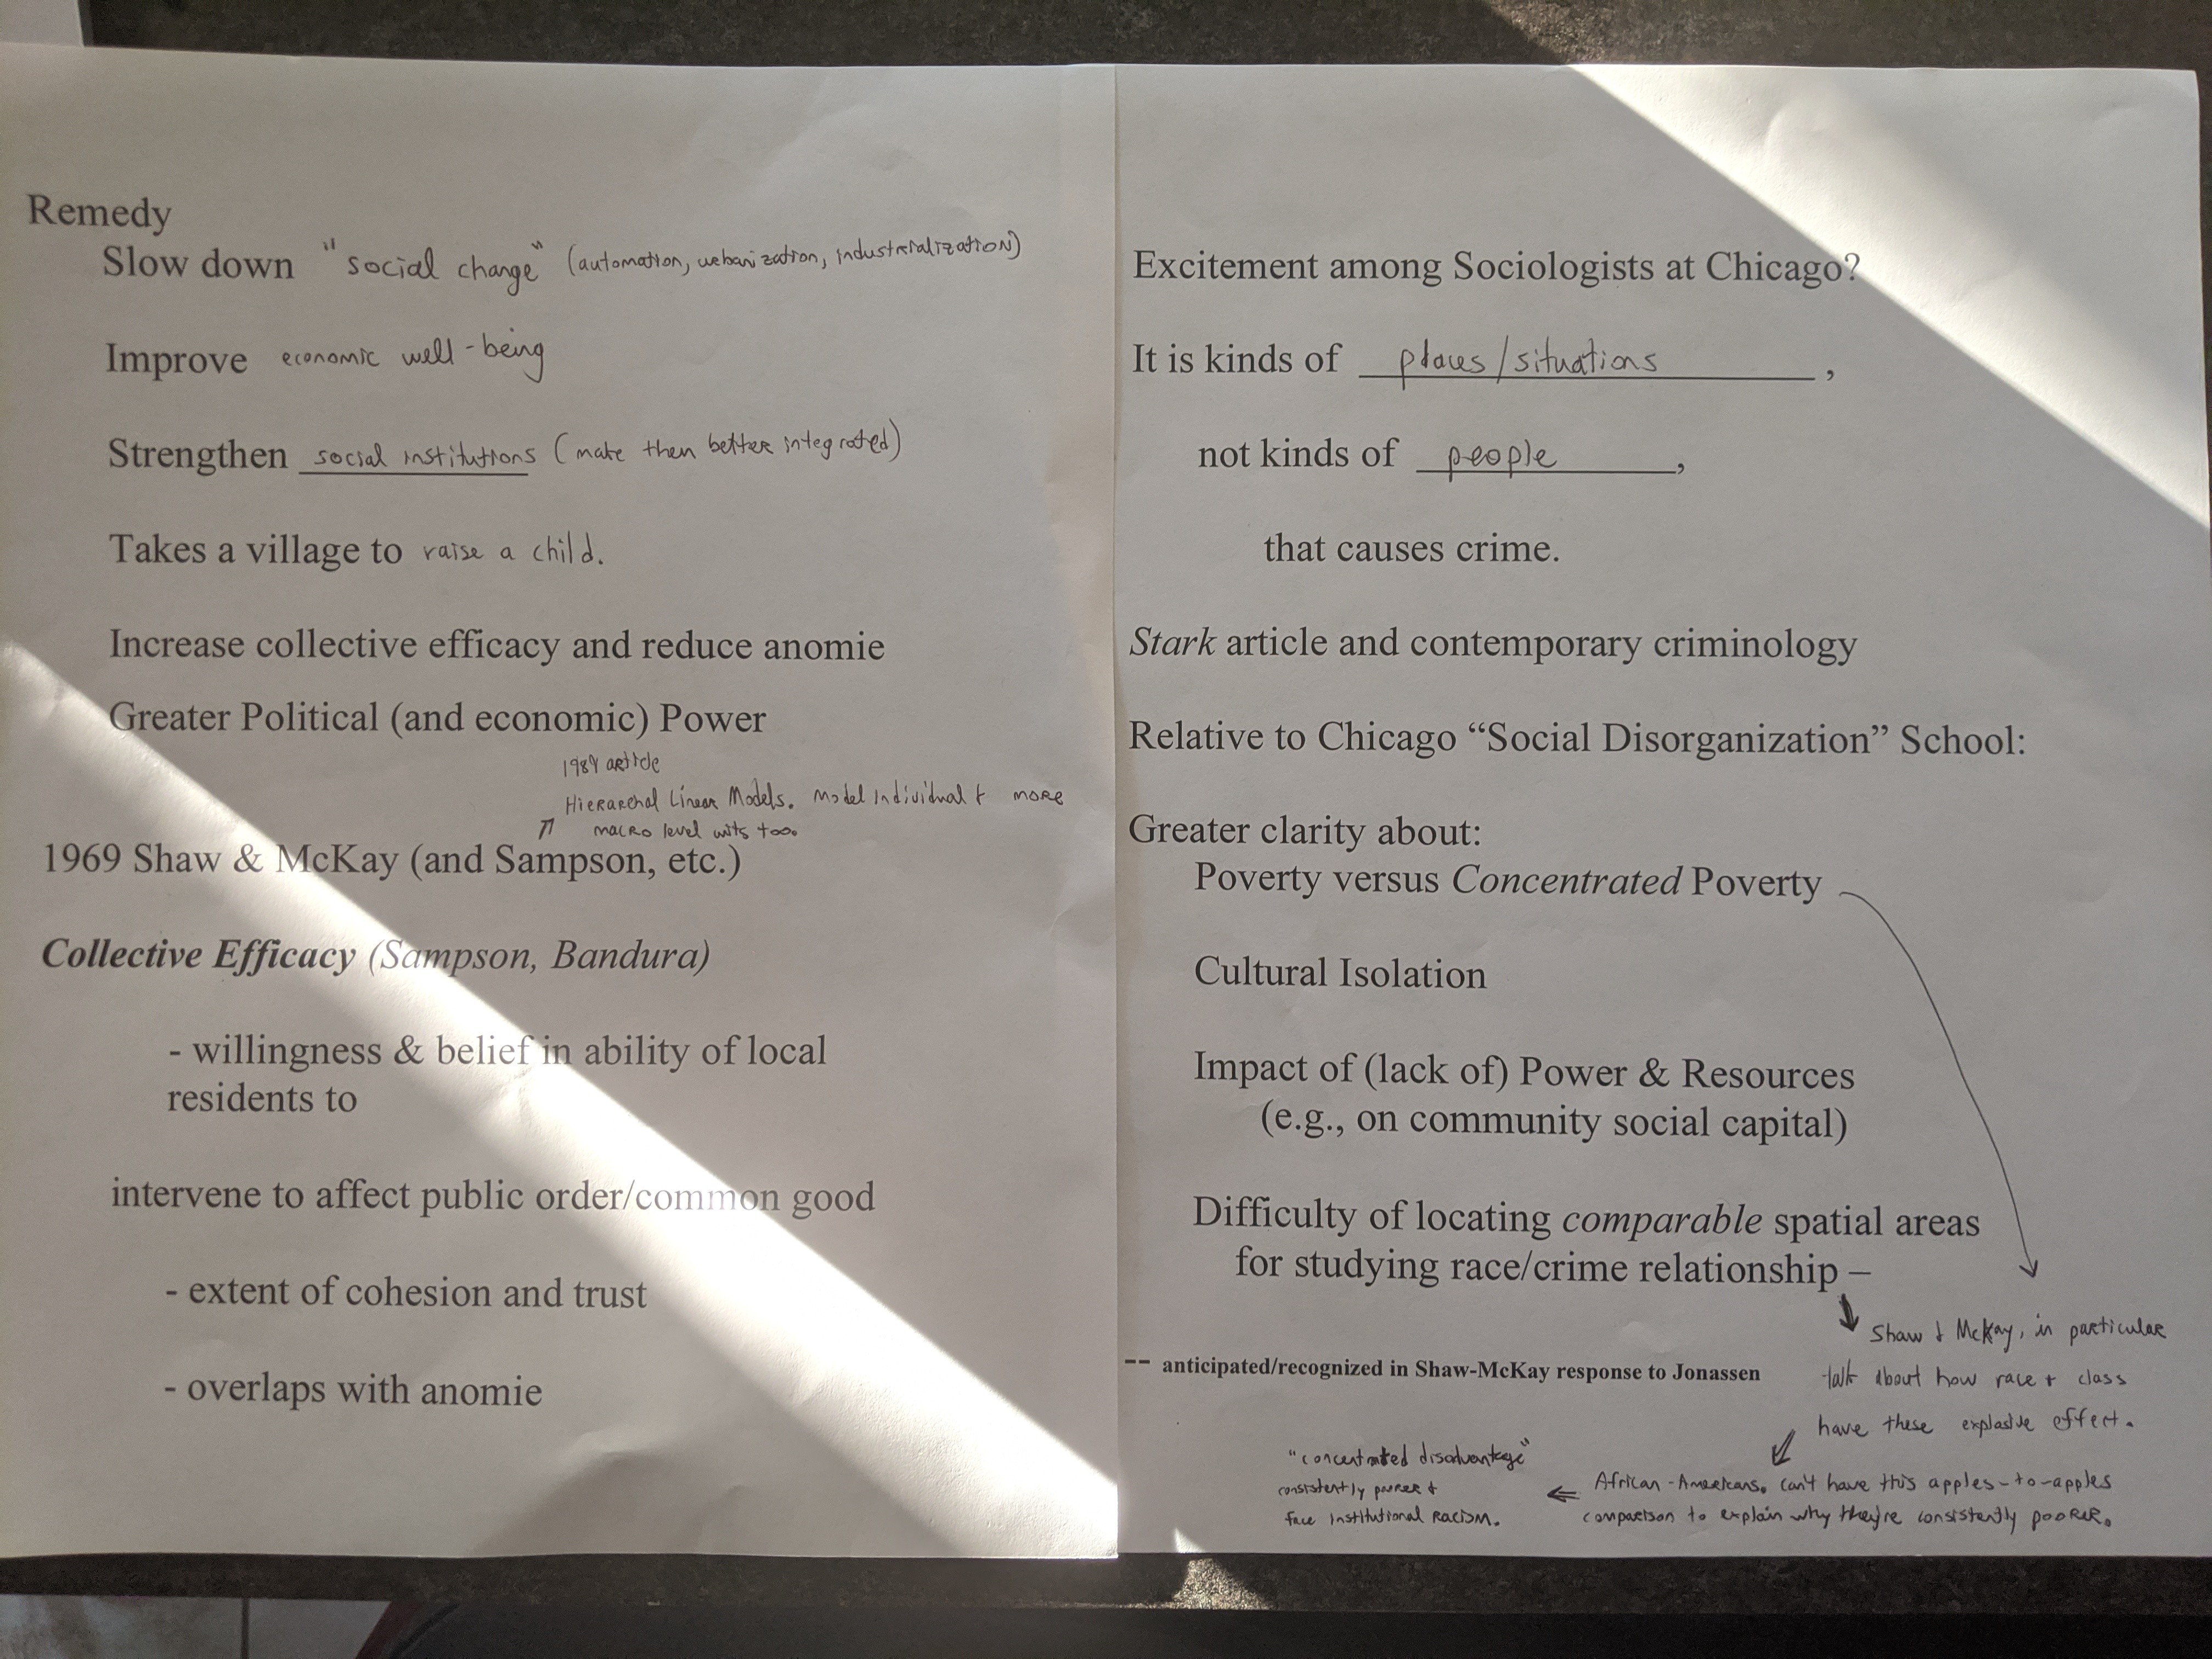 Remedy
Slow down "social change" (automation, urbanization, industrialization)
Improve economic well-being
Strengthen social institutions (make then better integrated)
Takes a village to raise a child.
Increase collective efficacy and reduce anomie
Greater Political (and economic) Power
article
Hierarchal Linear Models. Model individual + more
macro level units too.
1969 Shaw & McKay (and Sampson, etc.)
Collective Efficacy (Sampson, Bandura)
- willingness & belief in ability of local
residents to
intervene to affect public order/common good
- extent of cohesion and trust
- overlaps with anomie
Excitement among Sociologists at Chicago?
It is kinds of places/situations,
not kinds of people,
that causes crime.
Stark article and contemporary criminology
Relative to Chicago “Social Disorganization” School:
Greater clarity about:
Poverty versus Concentrated Poverty
Cultural Isolation
Impact of (lack of) Power & Resources
(e.g., on community social capital)
Difficulty of locating comparable spatial areas
for studying race/crime relationship –
Shaw & McKay, in particular
-- anticipated/recognized in Shaw-McKay response to Jonassen
talk about how race + class
have these explosive effect.
African-Americans. can't have this apples-to-apples
comparison to explain why they're consistently poorer.
"concentrated disadvantage"
consistently poorer &
face institutional racism.